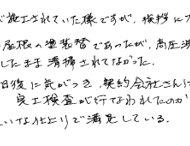 施工されていた様ですが、挨拶に
屋根の塗装替であったが、高圧洗
したまま清掃されてなかった。
日後に気がつき、契約会社さんに
完工検査が行なわれたのか
いな仕上りで満足している。